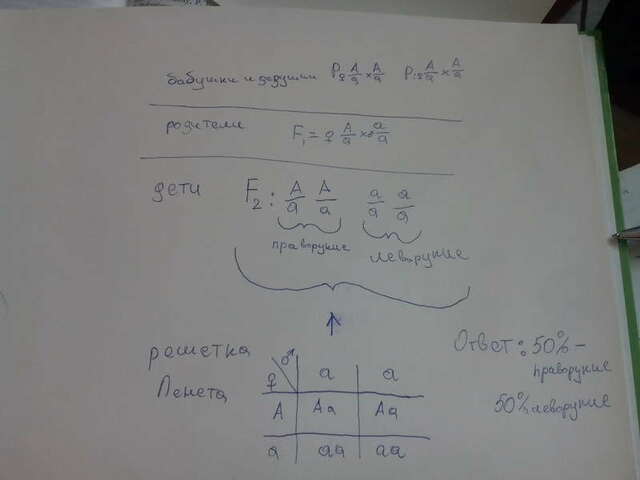 бабушки и дедушки P: ♀ A/a × A/a P: ♀ A/a × A/a
родители F₁ = ♀ A/a × ♂ a/a
дети F₂: A/a A/a a/a a/a
праворукие леворукие
↑
решетка Пенета
♀ ♂ a a
A Aa Aa
a aa aa
Ответ: 50% –
праворукие
50% леворукие